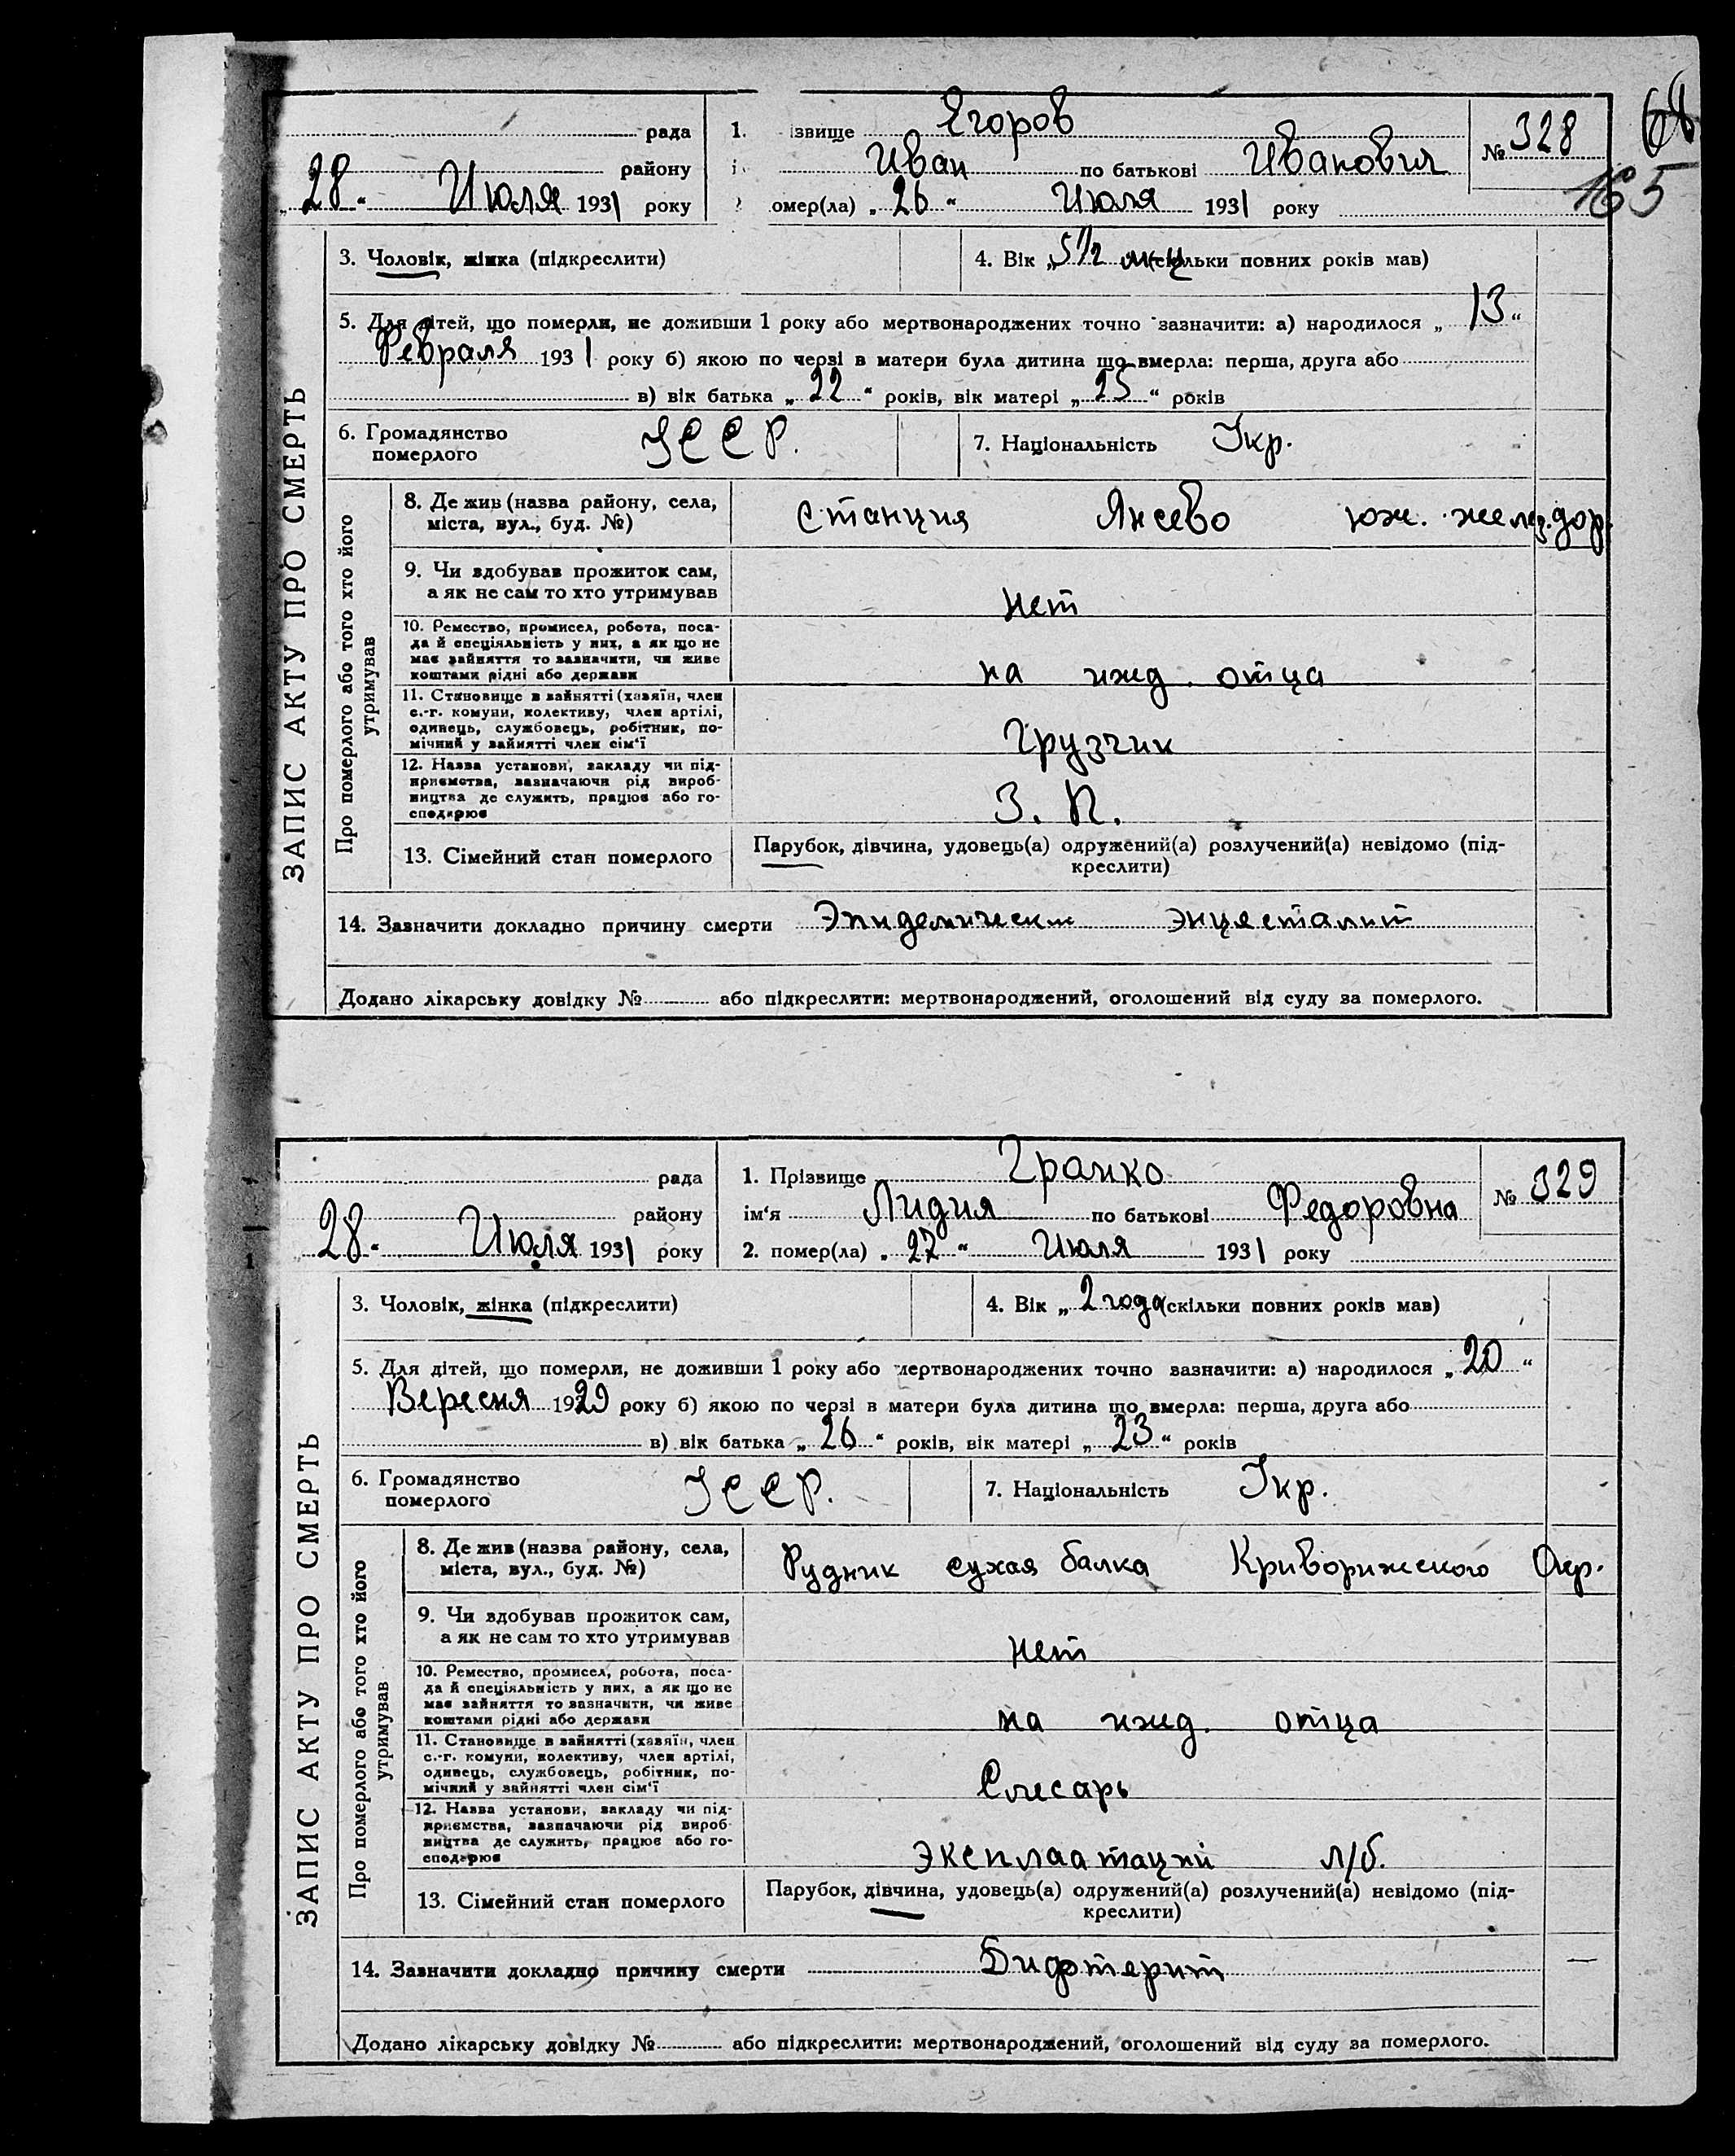 68
165
рада 1. ізвище Егоров № 328
району Иван по батькові Иванович
„28“ Июля 1931 року омер(ла) „26“ Июля 1931 року
3. Чоловік, жінка (підкреслити) 4. Вік „5 1/2 мц (скільки повних років мав)
5. Для дітей, що померли, не доживши 1 року або мертвонароджених точно зазначити: а) народилося „13“
Февраля 1931 року б) якою по черзі в матери була дитина що вмерла: перша, друга або
в) вік батька „22“ років, вік матері „25“ років
6. Громадянство
померлого УССР. 7. Національність Укр.
ЗАПИС АКТУ ПРО СМЕРТЬ
Про померлого або того хто його
утримував
8. Де жив (назва району, села,
міста, вул., буд. №) станция юж. желез. дор.
9. Чи здобував прожиток сам,
а як не сам то хто утримував нет
10. Ремество, промисел, робота, поса-
да й спеціяльність у них, а як що не
має зайняття то зазначити, чи живе
коштами рідні або держави на ижд. отца
11. Становище в зайнятті (хазяїн, член
с.-г. комуни, колективу, член артілі,
одинець, службовець, робітник, по-
мічний у зайнятті член сім'ї Грузчик
12. Назва установи, закладу чи під-
приємства, зазначаючи рід вироб-
ництва де служить, працює або го-
сподарює З. П.
13. Сімейний стан померлого Парубок, дівчина, удовець(а) одружений(а) розлучений(а) невідомо (під-
креслити)
14. Зазначити докладно причину смерти Эпидемическ
Додано лікарську довідку № або підкреслити: мертвонароджений, оголошений від суду за померлого.
рада 1. Прізвище Гранко № 329
району ім'я Лидия по батькові Федоровна
28“ Июля 1931 року 2. помер(ла) „27“ Июля 1931 року
3. Чоловік, жінка (підкреслити) 4. Вік „2 года (скільки повних років мав)
5. Для дітей, що померли, не доживши 1 року або мертвонароджених точно зазначити: а) народилося „20“
Вересня 1929 року б) якою по черзі в матери була дитина що вмерла: перша, друга або
в) вік батька „26“ років, вік матері „23“ років
6. Громадянство
померлого УССР. 7. Національність Укр.
ЗАПИС АКТУ ПРО СМЕРТЬ
Про померлого або того хто його
утримував
8. Де жив (назва району, села,
міста, вул., буд. №) Рудник сухая балка Криворижского Окр.
9. Чи здобував прожиток сам,
а як не сам то хто утримував нет
10. Ремество, промисел, робота, поса-
да й спеціяльність у них, а як що не
має зайняття то зазначити, чи живе
коштами рідні або держави на ижд. отца
11. Становище в зайнятті (хазяїн, член
с.-г. комуни, колективу, член артілі,
одинець, службовець, робітник, по-
мічний у зайнятті член сім'ї Слесарь
12. Назва установи, закладу чи під-
приємства, зазначаючи рід вироб-
ництва де служить, працює або го-
сподарює эксплаатации л/б.
13. Сімейний стан померлого Парубок, дівчина, удовець(а) одружений(а) розлучений(а) невідомо (під-
креслити)
14. Зазначити докладно причину смерти Дифтерит
Додано лікарську довідку № або підкреслити: мертвонароджений, оголошений від суду за померлого.